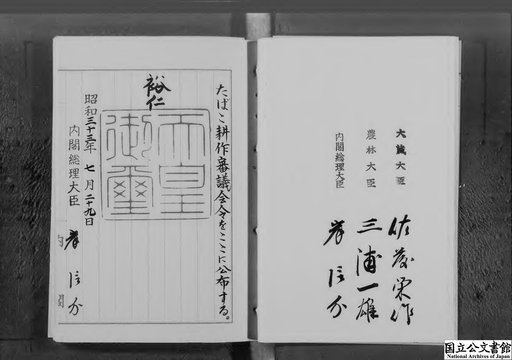 たばこ耕作審議会令をここに公布する。
裕仁
天皇御璽
昭和三十三年七月二十九日
内閣総理大臣 岸信介
大蔵大臣 佐藤栄作
農林大臣 三浦一雄
内閣総理大臣 岸信介
国立公文書館
National Archives of Japan